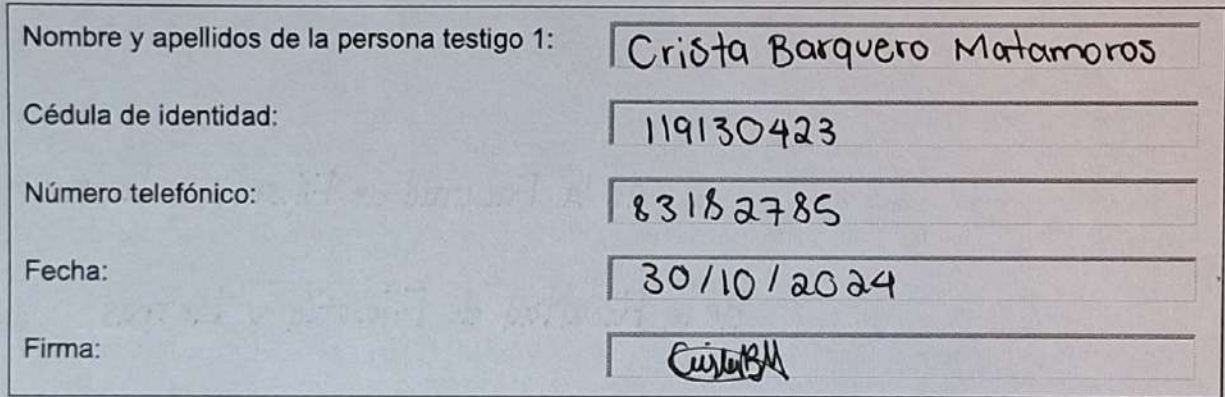 Nombre y apellidos de la persona testigo 1: Crista Barquero Matamoros
Cédula de identidad: 119130423
Número telefónico: 83182785
Fecha: 30/10/2024
Firma: CristaBM